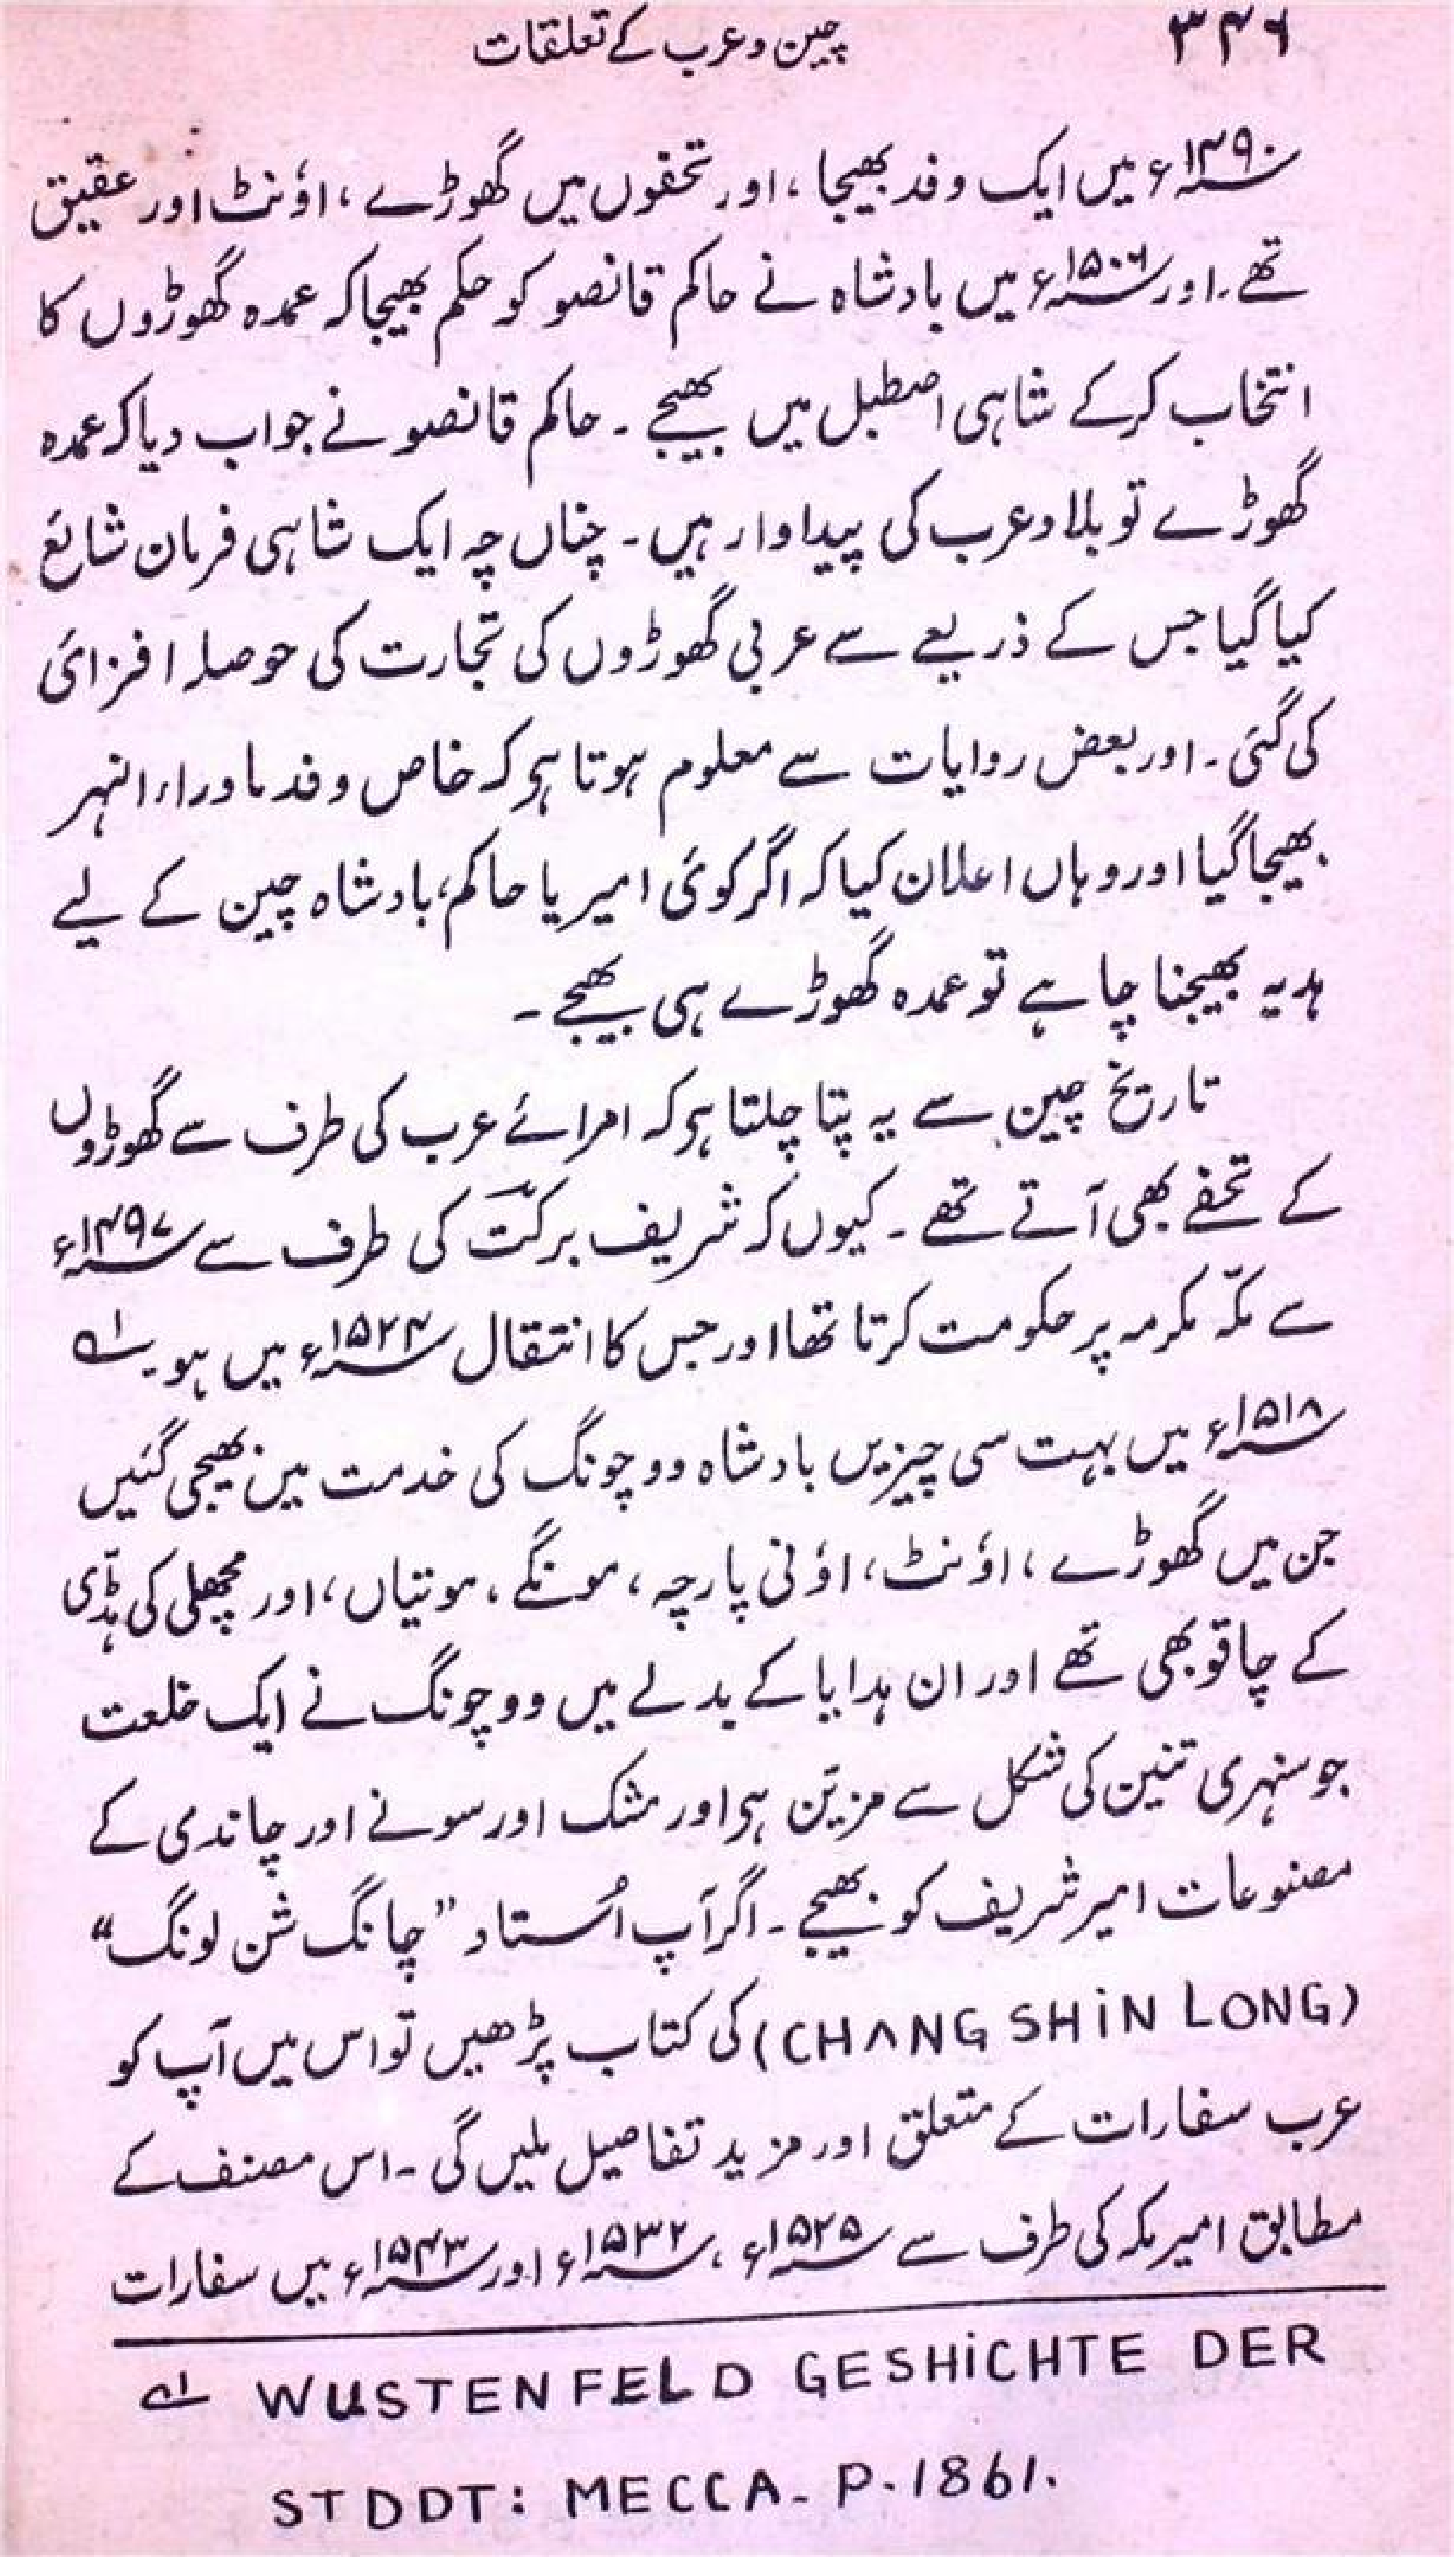 ۳۴۶ چین و عرب کے تعلقات
۱۴۹۰ء میں ایک وفد بھیجا، اور تحفوں میں گھوڑے، اؤنٹ اور عقیق
تھے۔ اور ۱۵۰۶ء میں بادشاہ نے حاکم قانصو کو حکم بھیجا کہ عمدہ گھوڑوں کا
انتخاب کرکے شاہی اصطبل میں بھیجے۔ حاکم قانصو نے جواب دیا کہ عمدہ
گھوڑے تو بلاد عرب کی پیداوار ہیں۔ چناں چہ ایک شاہی فرمان شائع
کیا گیا جس کے ذریعے سے عربی گھوڑوں کی تجارت کی حوصلہ افزائ
کی گئی۔ اور بعض روایات سے معلوم ہوتا ہی کہ خاص وفد ماوراء النہر
بھیجا گیا اور وہاں اعلان کیا کہ اگر کوئ امیر یا حاکم، بادشاہ چین کے لیے
ہدیہ بھیجنا چاہے تو عمدہ گھوڑے ہی بھیجے۔
تاریخ چین سے یہ پتا چلتا ہی کہ امرائے عرب کی طرف سے گھوڑوں
کے تحفے بھی آتے تھے۔ کیوں کہ شریف برکت کی طرف سے ۱۴۹۷ء
سے مکّہ مکرمہ پر حکومت کرتا تھا اور جس کا انتقال ۱۵۲۴ء میں ہو۔ ۱ے
۱۵۱۸ء میں بہت سی چیزیں بادشاہ ووچونگ کی خدمت میں بھیجی گئیں
جن میں گھوڑے، اؤنٹ، اؤنی پارچہ، مونگے، موتیاں، اور مچھلی کی ہڈّی
کے چاقو بھی تھے اور ان ہدایا کے بدلے میں ووچونگ نے ایک خلعت
جو سنہری تنین کی شکل سے مزیّن ہی اور مشک اور سونے اور چاندی کے
مصنوعات امیر شریف کو بھیجے۔ اگر آپ اُستاد ”چانگ شن لونگ“
(CHANG SHIN LONG) کی کتاب پڑھیں تو اس میں آپ کو
عرب سفارات کے متعلق اور مزید تفاصیل ملیں گی۔ اس مصنف کے
مطابق امیر مکہ کی طرف سے ۱۵۲۵ء، ۱۵۳۲ء اور ۱۵۴۳ء میں سفارات
۱ے WUSTENFELD GESHICHTE DER
STDDT: MECCA- P. 1861.